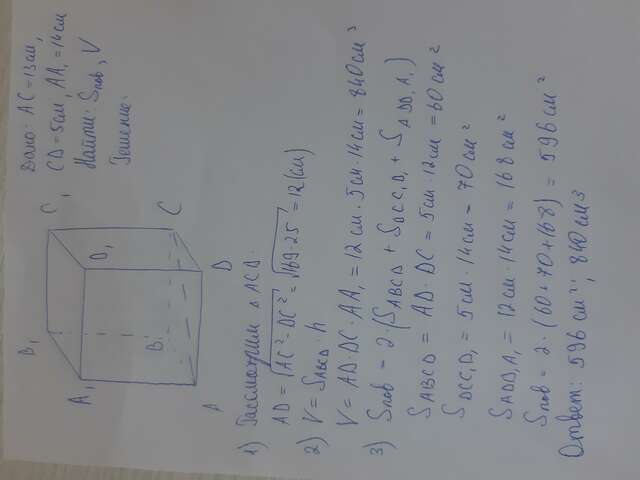 Дано: AC = 13 см,
CD = 5 см, AA₁ = 14 см
Найти: Sпов, V
Решение:
B₁
C₁
A₁
D₁
B
C
A
D
1) Рассмотрим △ ACD.
AD = √AC² - DC² = √169-25 = 12 (см)
2) V = SABCD · h
V = AD · DC · AA₁ = 12 см · 5 см · 14 см = 840 см³
3) Sпов = 2 · (SABCD + SDCC₁D₁ + SADD₁A₁)
SABCD = AD · DC = 5 см · 12 см = 60 см²
SDCC₁D₁ = 5 см · 14 см = 70 см²
SADD₁A₁ = 12 см · 14 см = 168 см²
Sпов = 2 · (60 + 70 + 168) = 596 см²
Ответ: 596 см²; 840 см3